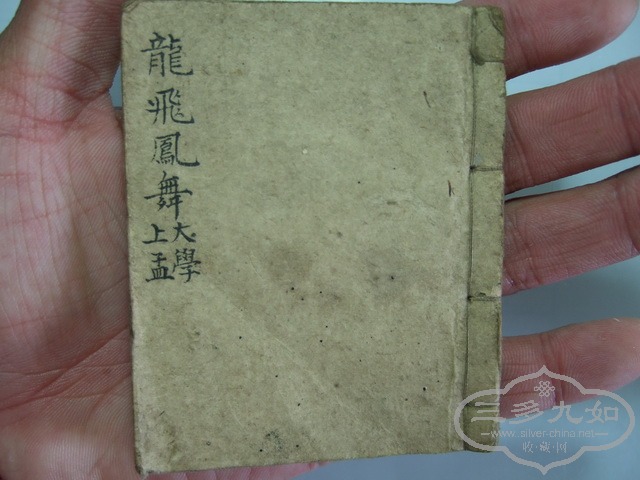 龍飛鳳舞
大學
上孟
三多九如
www.silver-china.net
收·藏·网